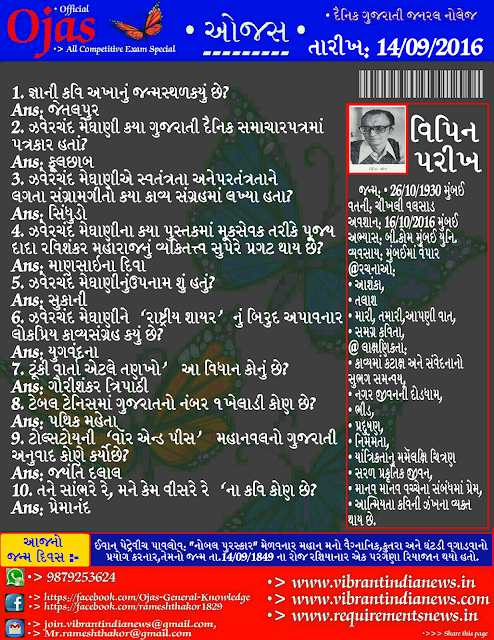 • Official
Ojas
•> All Competitive Exam Special
• ઓજસ •
• દૈનિક ગુજરાતી જનરલ નોલેજ
તારીખ: 14/09/2016
1. જ્ઞાની કવિ અખાનું જન્મસ્થળકયું છે?
Ans; જેતલપુર
2. ઝવેરચંદ મેઘાણી કયા ગુજરાતી દૈનિક સમાચારપત્રમાં
પત્રકાર હતાં?
Ans; ફૂલછાબ
3. ઝવેરચંદ મેઘાણીએ સ્વતંત્રતા અનેપરતંત્રતાને
લગતા સંગ્રામગીતો કયા કાવ્ય સંગ્રહમાં લખ્યા હતા?
Ans; સિંધુડો
4. ઝવેરચંદ મેઘાણીના કયા પુસ્તકમાં મૂકસેવક તરીકે પૂજ્ય
દાદા રવિશંકર મહારાજનું વ્યકિતત્ત્વ સુપેરે પ્રગટ થાય છે?
Ans; માણસાઇના દિવા
5. ઝવેરચંદ મેઘાણીનુંઉપનામ શું હતું?
Ans; સુકાની
6. ઝવેરચંદ મેઘાણીને ‘રાષ્ટ્રીય શાયર’ નું બિરુદ અપાવનાર
લોકપ્રિય કાવ્યસંગ્રહ કયું છે?
Ans; યુગવંદના
7. ટૂંકી વાર્તા એટલે તણખો’ આ વિધાન કોનું છે?
Ans; ગૌરીશંકર ત્રિપાઠી
8. ટેબલ ટેનિસમાં ગુજરાતનો નંબર ૧ખેલાડી કોણ છે?
Ans; પથિક મહેતા
9. ટોલ્સટોયની ‘વોર એન્ડ પીસ’ મહાનવલનો ગુજરાતી
અનુવાદ કોણે કર્યોછે?
Ans; જ્યંતિ દલાલ
10. તને સાંભરે રે, મને કેમ વીસરે રે ‘ના કવિ કોણ છે?
Ans; પ્રેમાનંદ
વિપિન
પરીખ
જન્મ; • 26/10/1930 મુંબઈ
વતની; ચીખલી વલસાડ
અવશાન; 16/10/2016 મુંબઈ
અભ્યાસ; બી.કોમ મુંબઈ યુનિ.
વ્યવસાય; મુંબઈમાં વેપાર
@રચનાઓ;
• આશંકા,
• તલાશ
• મારી, તમારી,આપણી વાત,
• સમગ્ર કવિતા,
@ લાક્ષણિકતા;
• કાવ્યમાં કટાક્ષ અને સંવેદનાનો
સુભગ સમન્વય,
• નગર જીવનની દોડધામ,
• ભીડ,
• પ્રદૂષણ,
• નિર્મમતા,
• યાંત્રિકતાનું મર્મલક્ષિ ચિત્રણ
• સરળ પ્રકૃતિક જીવન,
• માનવ માનવ વચ્ચેના સંબંધમાં પ્રેમ,
• આત્મિયતા કવિની ઝંખના વ્યક્ત
થાય છે.
આજનો
જન્મ દિવસ :-
ઈવાન પેટ્રેવીચ પાવલોવ: "નોબલ પુરસ્કાર" મેળવનાર મહાન મનો વૈજ્ઞાનિક,કુતરા અને ઘંટડી વગાડવાનો
પ્રયોગ કરનાર,તેમનો જન્મ તા.14/09/1849 ના રોજ રશિયાનાર એક પરગણા રિયાજાન થયો હતો.
•> 9879253624
•> https://facebook.com/Ojas-General-Knowledge
•> https://facebook.com/rameshthakor1829
•> join.vibrantindianews@gmail.com,
Mr.rameshthakor@gmail.com
•> www.vibrantindianews.in
•> www.vibrantindianews.com
•> www.requirementsnews.in
•>>>> Share this page